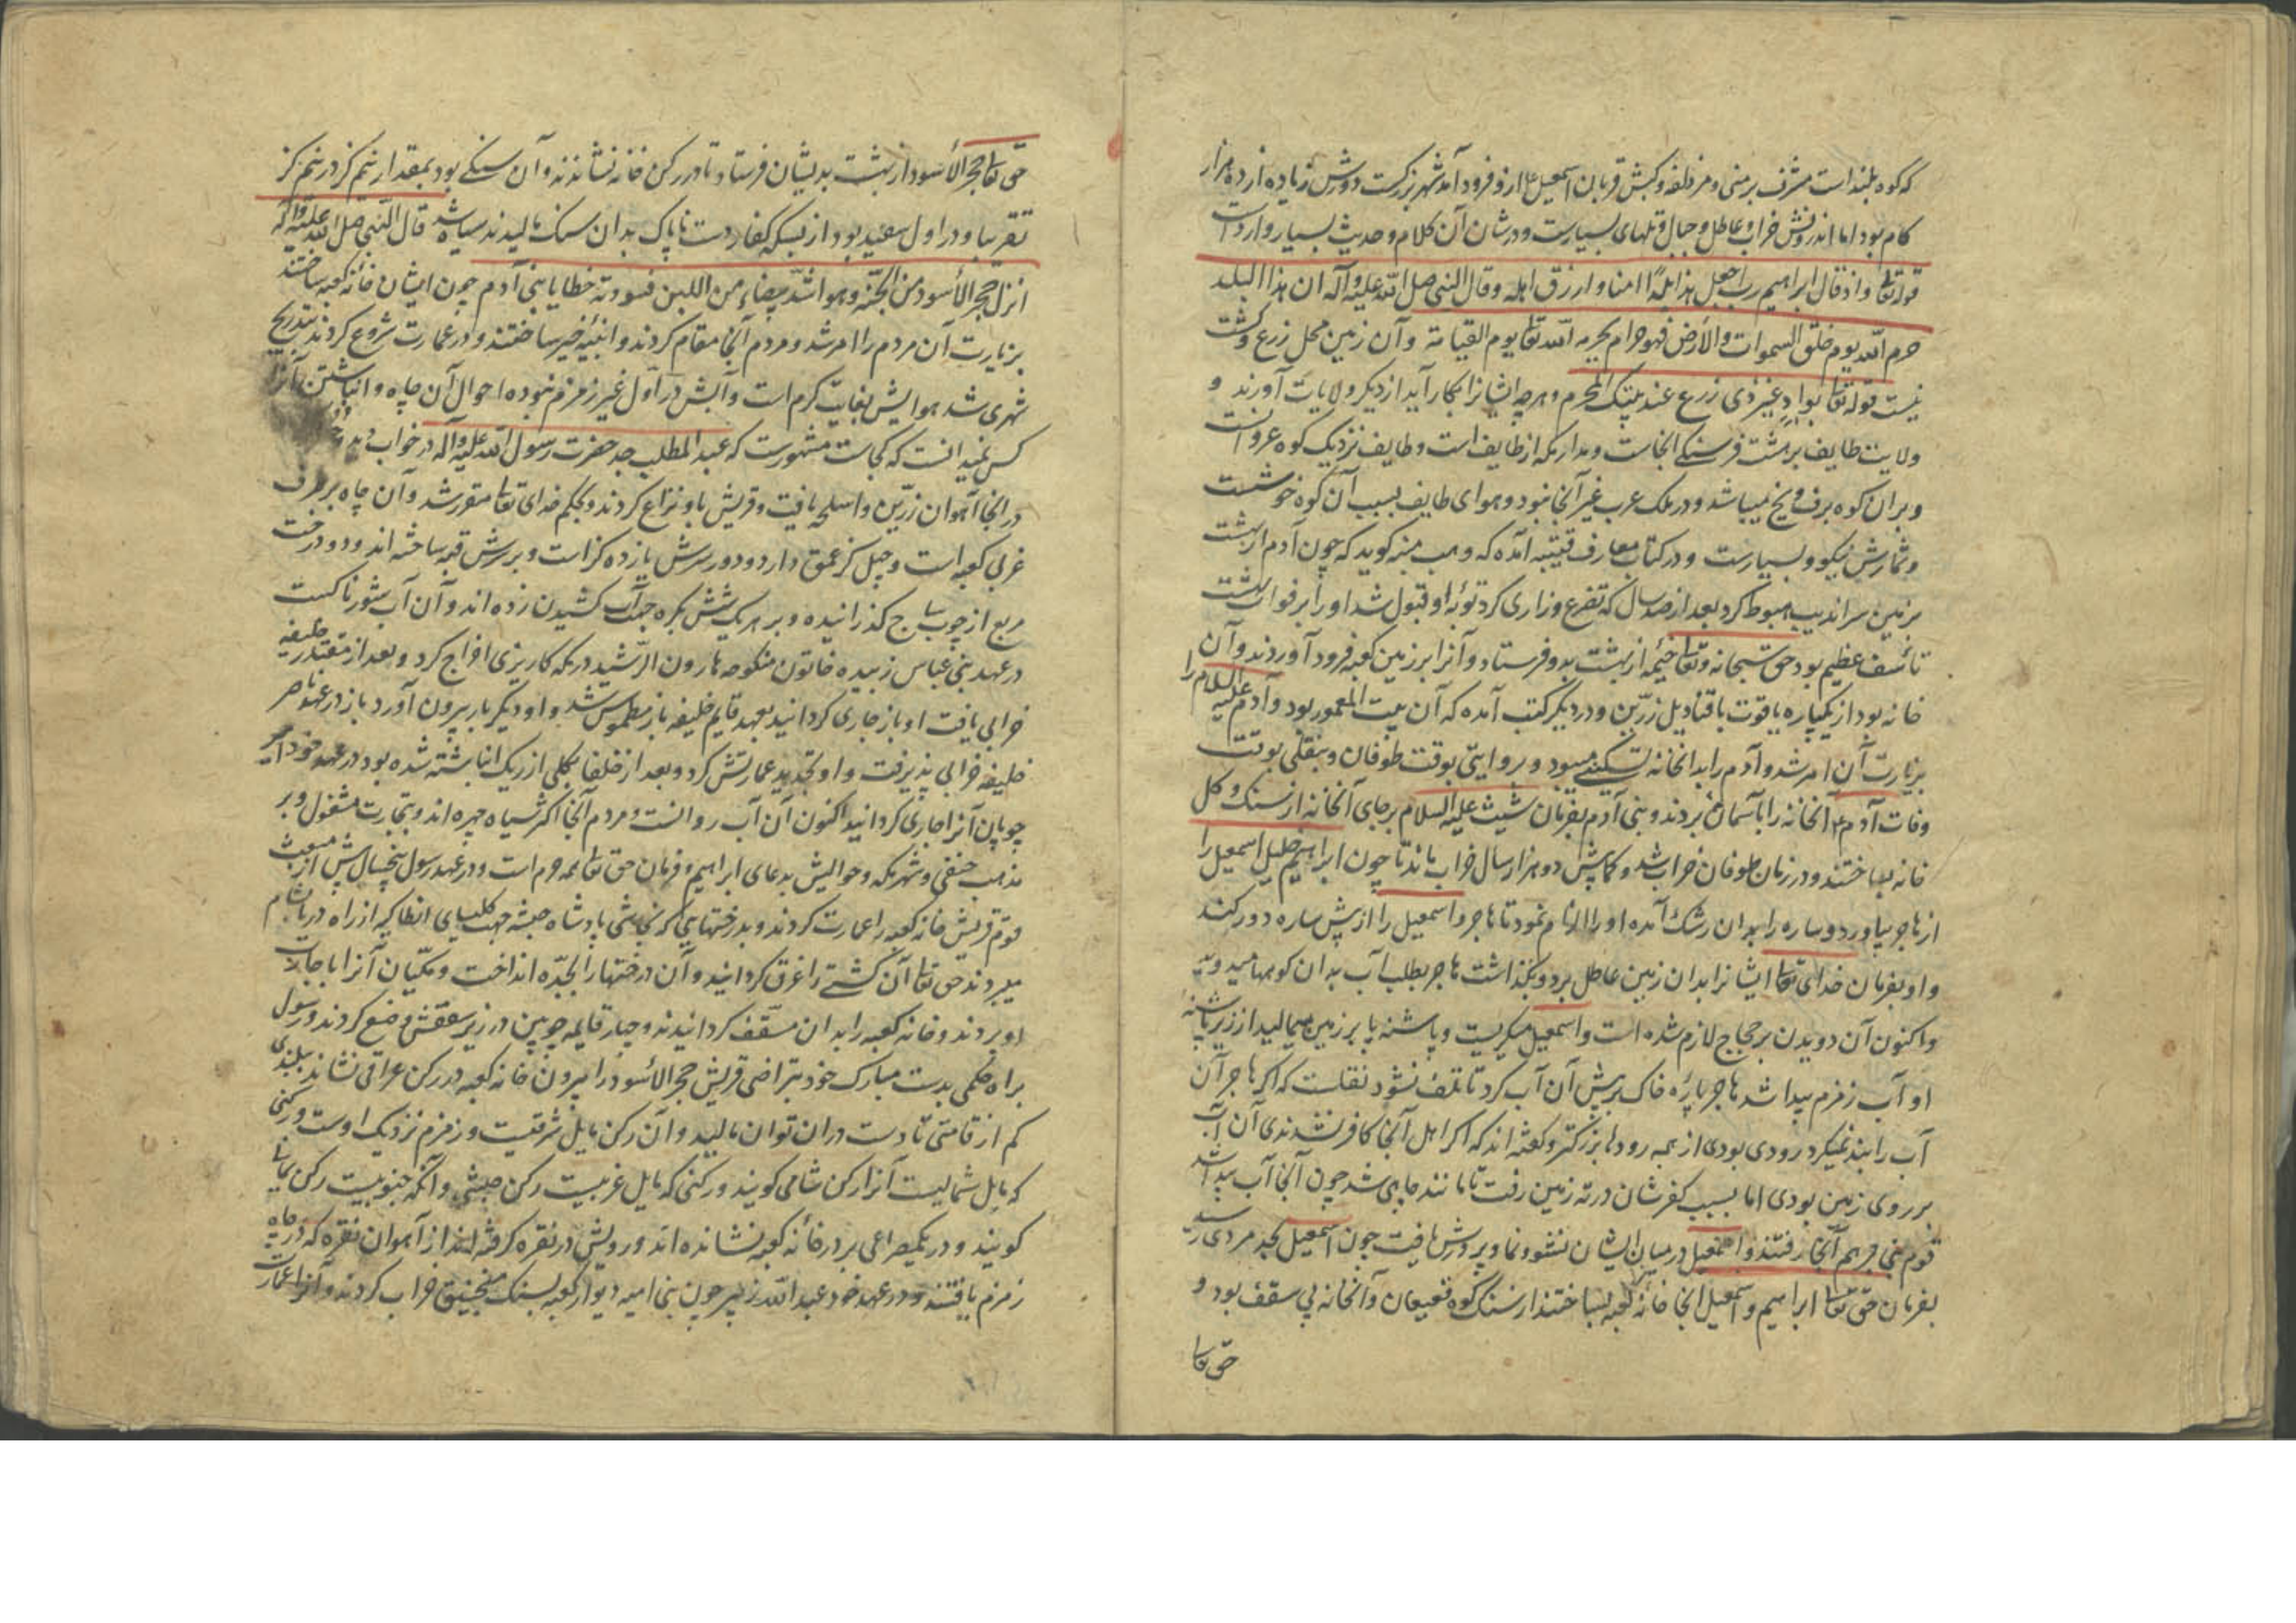 که کوه بلند است مشرف بر منی و مزدلفه و کبش قربان اسمعیل ع از او فرود آمد شهر بزرگست دورش زیاده از ده هزار
کام بود اما اندرونش خراب و عاطل و جبال و تلهای بسیارست و در شان آن کلام و حدیث بسیار وارد است
قوله تعالی و اذ قال ابراهیم رب اجعل هذا بلدًا امنا و ارزق اهله و قال النبی صلی الله علیه و آله ان هذا البلد
حرم الله یوم خلق السموات والأرض فهو حرام بحرمه الله تعا یوم القیامة و آن زمین محل زرع و کشت
نیست قوله تعا بوادٍ غیر ذی زرع عند بیتک المحرم و هرچه ایشانرا بکار آید از دیگر ولایات آورند و
ولایت طایف بر هشت فرسنگی آنجاست و مدار مکه از طایف است و طایف نزدیک کوه غزوان است
و بران کوه برف و یخ میباشد و در ملک عرب غیر آنجا نبود و هوای طایف بسبب آن کوه خوشست
و ثمارش نیکو و بسیارست و در کتاب معارف قتیبه آمده که وهب منبه کوید که چون آدم از بهشت
بزمین سراندیب هبوط کرد بعد از صد سال که تضرع و زاری کرد توبهٔ او قبول شد او را بر فوات بهشت
تأسف عظیم بود حق سبحانه و تعا خیمه از بهشت بدو فرستاد و آنرا بر زمین کعبه فرود آوردند و آن
خانه بود از یکپاره یاقوت با قنادیل زرّین و در دیگر کتب آمده که آن بیت المعمور بود و آدم علیه السلام را
بزیارت آن امر شد و آدم را بدانخانه تسکینی میبود و بروایتی بوقت طوفان و بنقلی بوقت
وفات آدم ع آنخانه را بآسمان بردند و بنی آدم بفرمان شیث علیه السلام بر جای آنخانه از سنک و کل
خانه بساختند و در زمان طوفان خراب شد و کمابیش دو هزار سال خراب ماند تا چون ابراهیم خلیل اسمعیل را
از هاجر بیاورد و ساره را بدان رشک آمده او را الزام نمود تا هاجر و اسمعیل را از پیش ساره دور کند
و او بفرمان خدای تعا ایشانرا بدان زمین عاطل برد و بگذاشت هاجر بطلب آب بدان کوهها میدوید
و اکنون آن دویدن بر حجاج لازم شده است و اسمعیل میگریست و پاشنه پا بر زمین میمالید از زیر پاشنه
او آب زمزم پیدا شد هاجر پارهٔ خاک بر پیش آن آب کرد تا تلف نشود نقلست که اگر هاجر آن
آب را بند نمیکرد رودی بودی از همه رودها بزرگتر و گفته اند که اگر اهل آنجا کافر نشدندی آن آب
بر روی زمین بودی اما بسبب کفرشان در ته زمین رفت تا مانند چاهی شد چون آنجا آب پیدا شد
قوم بنی جرهم آنجا رفتند و اسمعیل در میان ایشان نشو و نما و پرورش یافت چون اسمعیل بحد مردی رسید
بفرمان حق تعا ابراهیم و اسمعیل آنجا خانهٔ کعبه بساختند از سنک کوه قعیقعان و آنخانه بی سقف بود و
حق تعا
حق تعا حجر الأسود از بهشت بدیشان فرستاد تا در رکن خانه نشاندند و آن سنگی بود بمقدار نیم کز در نیم کز
تقریبا و در اول سفید بود از بسکه کفار دست ناپاک بدان سنک مالیدند سیاه شد قال النبی صلی الله علیه و آله
انزل حجر الأسود من الجنّة و هو اشدّ بیضاء من اللبن فسودته خطایا بنی آدم چون ایشان خانهٔ کعبه ساختند
بزیارت آن مردم را امر شد و مردم آنجا مقام کردند و ابنیهٔ خیر ساختند و در عمارت شروع کردند بتدریج
شهری شد هوایش بغایت گرم است و آبش در اول غیر زمزم نبوده احوال آن چاه و انباشتن آنرا
کس نمیدانست که کجاست مشهورست که عبد المطلب جد حضرت رسول الله علیه و آله در خواب دید
در آنجا آهوان زرّین و اسلحه یافت و قریش با او نزاع کردند و بحکم خدای تعا مقرر شد و آن چاه بر طرف
غربی کعبه است و چهل گز عمق دارد و دور سرش یازده گز است و بر سرش قبه ساخته اند و دو درخت
مربع از چوب ساج گذرانیده و بر هر یک شش بکره جهت آب کشیدن زده اند و آن آب شورناکست
در عهد بنی عباس زبیده خاتون منکوحه هارون الرّشید در مکه کاریزی اخراج کرد و بعد از مقتدر خلیفه
خرابی یافت او باز جاری کردانید بعهد قایم خلیفه باز مطموس شد و او دیگر بار بیرون آورد باز در عهد ناصر
خلیفه خرابی پذیرفت و او تجدید عمارتش کرد و بعد از خلفا بکلی از ریک انباشته شده بود در عهد خود امیر
چوپان آنرا جاری کردانید اکنون آن آب روانست و مردم آنجا اکثر سیاه چهره اند و بتجارت مشغول و بر
مذهب حنفی و شهر مکه و حوالیش بدعای ابراهیم و فرمان حق تعا همه حرم است و در عهد رسول پنجسال پیش از مبعث
قوم قریش خانه کعبه را عمارت کردند و بدرختهایی که نجاشی پادشاه حبشه جهت کلیسیای انطاکیه از راه دریا بشام
میبردند حق تعا آن کشتی را غرق کردانید و آن درختها را بجدّه انداخت و مکّیان آنرا باجازت
او بردند و خانه کعبه را بدان مسقّف کردانیدند و چهار قایمه چوبین در زیر سقفش وضع کردند و رسول
براه حکمی بدست مبارک خود بتراضی قریش حجر الاسود را بیرون خانه کعبه در رکن عراقی نشاند ببلندی
کم از قامتی تا دست دران توان مالید و آن رکن مایل شرقیت و زمزم نزدیک اوست و رکنی
که مایل شمالیست آنرا رکن شامی کویند و رکنی که مایل غربیست رکن حبشی و آنکه جنوبیست رکن یمانی
کویند و در یکمصراعی بر در خانهٔ کعبه نشانده اند و رویش در نقره کرفته اند از آهوان نقره که در چاه
زمزم یافتند و در عهد خود عبد الله زبیر چون بنی امیه دیوار کعبه بسنک منجنیق خراب کردند و آنرا عمارت